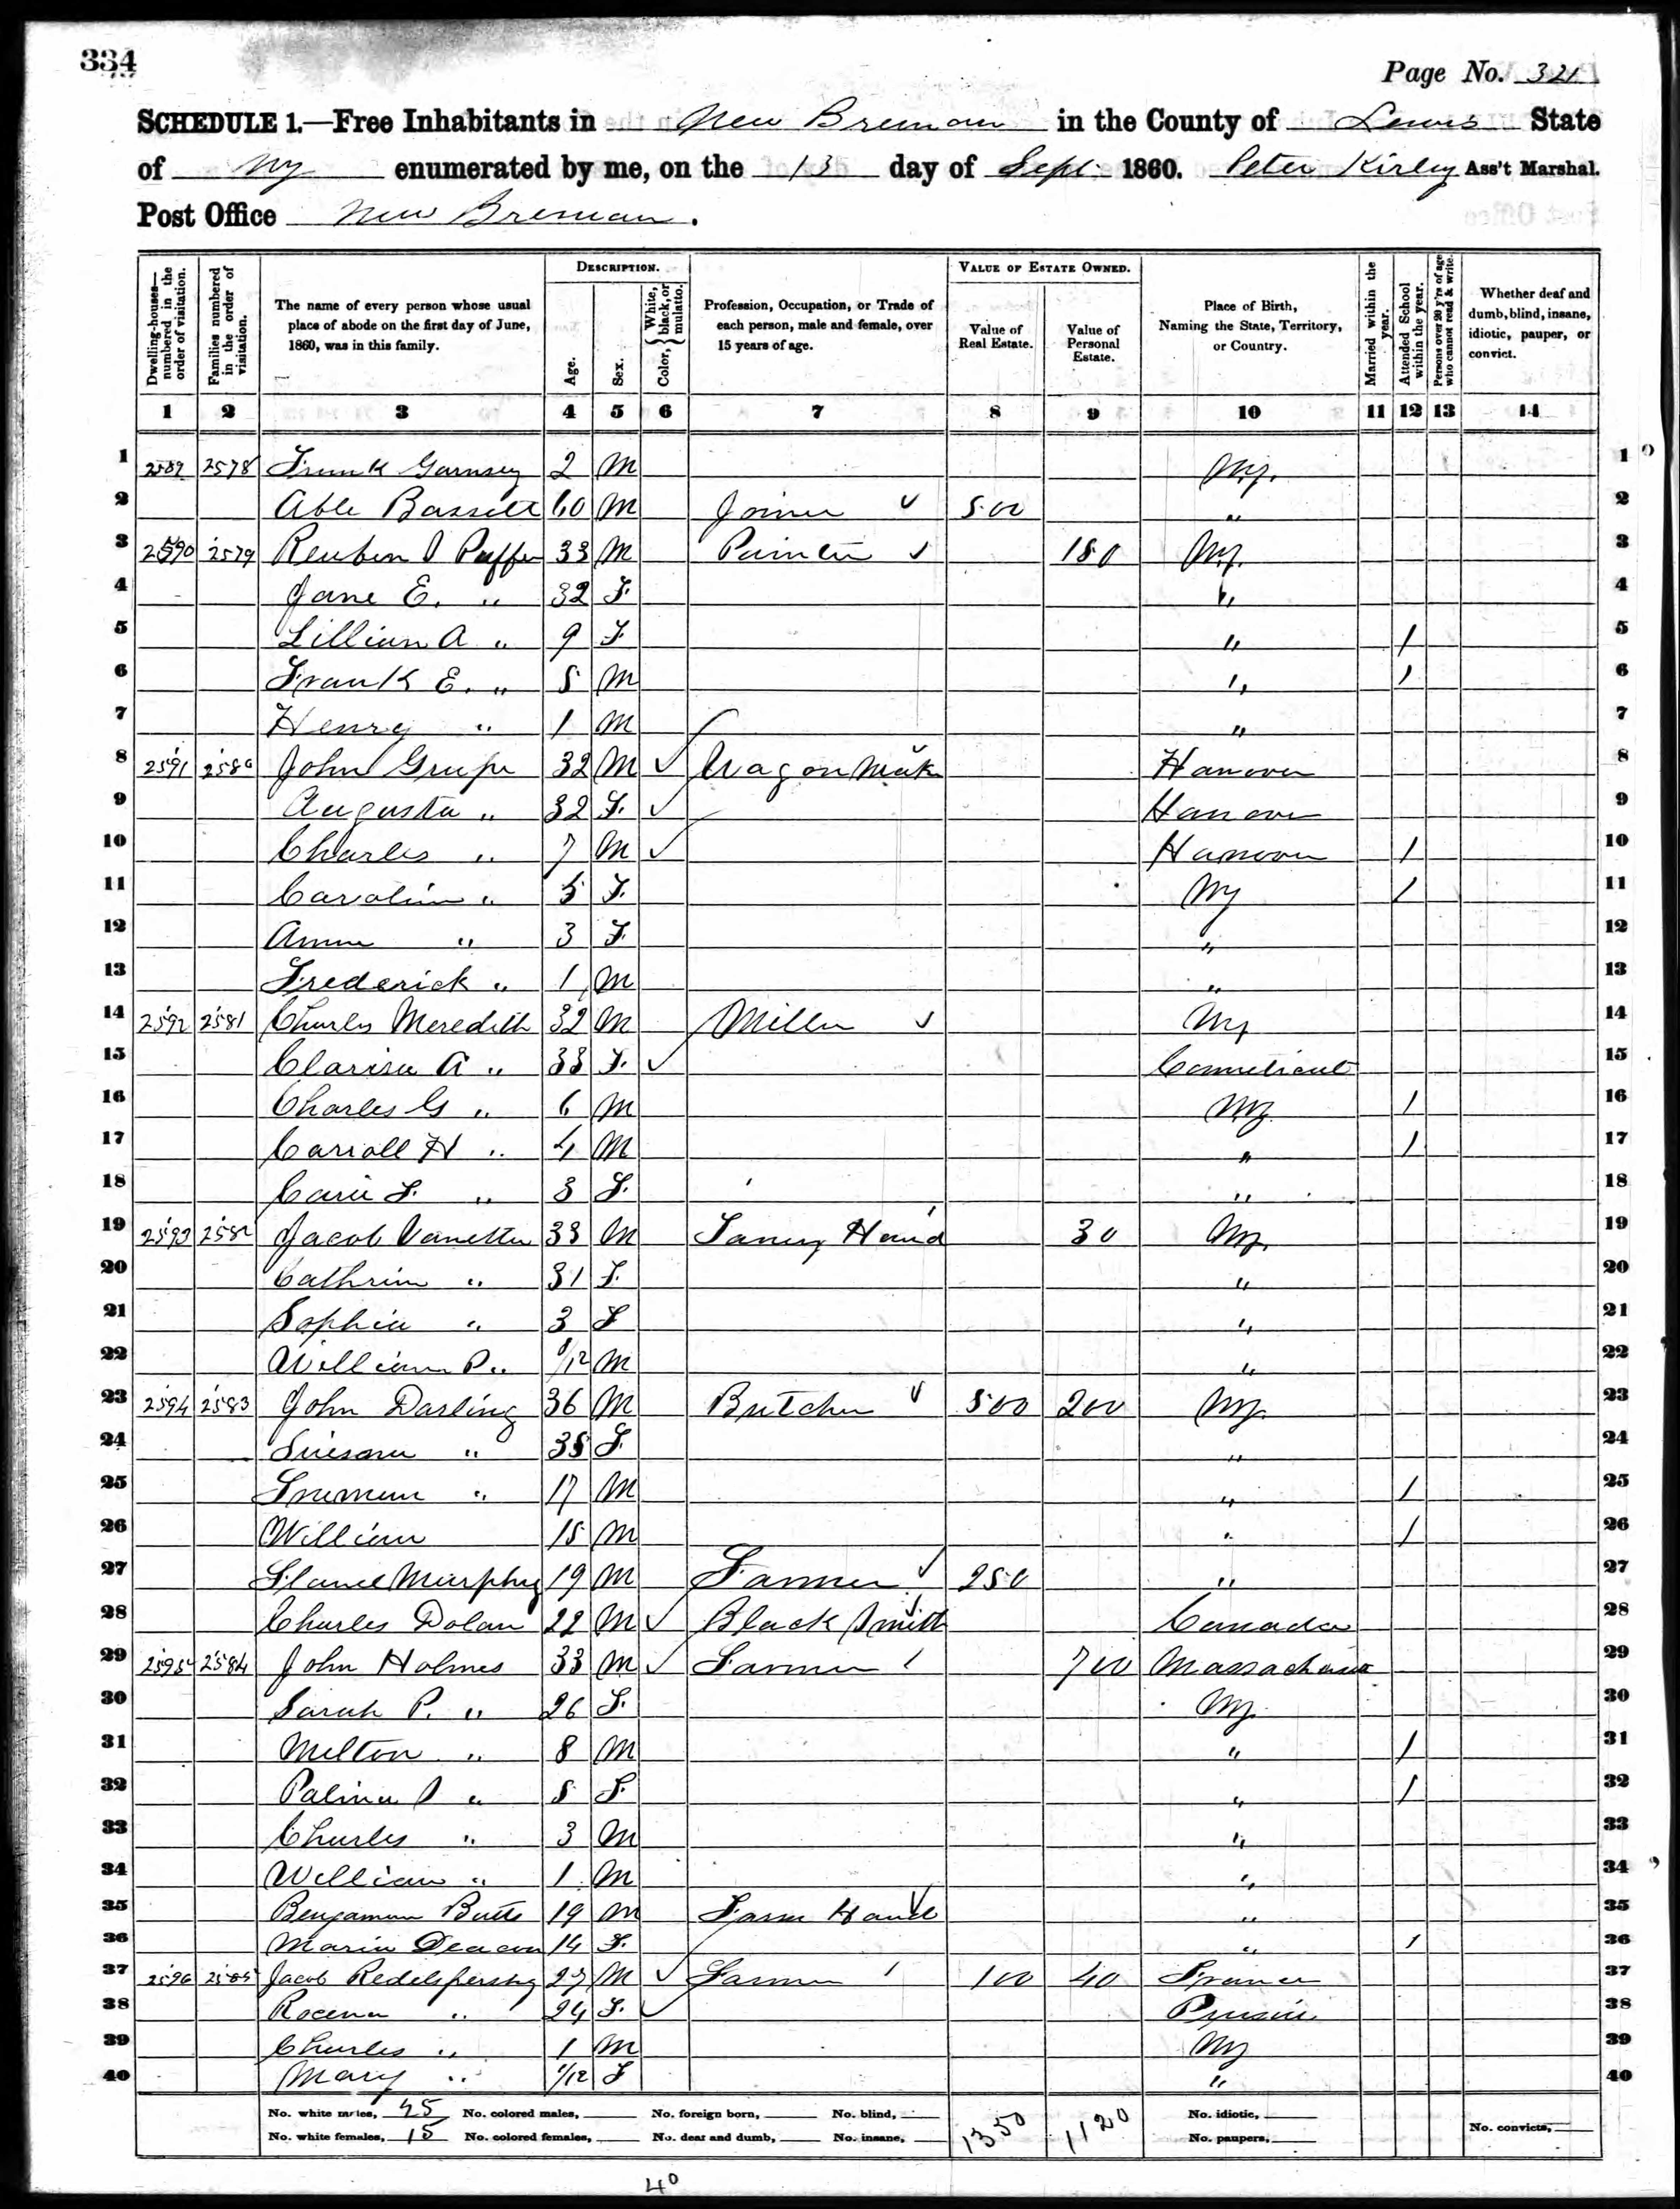 334
Page No. 321
SCHEDULE 1.—Free Inhabitants in New Breman in the County of Lewis State
of NY enumerated by me, on the 13 day of Sept. 1860. Peter Kirley Ass't Marshal.
Post Office New Breman.
Dwelling-houses—numbered in the order of visitation.
Families numbered in the order of visitation.
The name of every person whose usual place of abode on the first day of June, 1860, was in this family.
DESCRIPTION.
Age.
Sex.
Color, White, black, or mulatto.
Profession, Occupation, or Trade of each person, male and female, over 15 years of age.
VALUE OF ESTATE OWNED.
Value of Real Estate.
Value of Personal Estate.
Place of Birth, Naming the State, Territory, or Country.
Married within the year.
Attended School within the year.
Persons over 20 y'rs of age who cannot read & write.
Whether deaf and dumb, blind, insane, idiotic, pauper, or convict.
1 2 3 4 5 6 7 8 9 10 11 12 13 14
1 2589 2578 Frank Garnsey 2 M NY. 1
2 Able Bassett 60 M Joiner 500 " 2
3 2590 2579 Reuben Puffer 33 M Painter 180 NY. 3
4 Jane E. " 32 F. " 4
5 Lillian A " 9 F " / 5
6 Frank E. " 5 M " / 6
7 Henry " 1 M " 7
8 2591 2580 John Grupe 32 M Wagon Mak Hanover 8
9 Augusta " 32 F. Hanover 9
10 Charles " 7 M Hanover / 10
11 Carolin " 5 F. NY / 11
12 Anna " 3 F. " 12
13 Frederick " 1 M " 13
14 2592 2581 Charles Meredith 32 M Miller NY 14
15 Clarisa A " 33 F. Connecticut 15
16 Charles G " 6 M NY / 16
17 Carroll H " 4 M " / 17
18 Carie F. " 3 F. " 18
19 2593 2582 Jacob Vanetter 33 M Hand 30 NY. 19
20 Cathrin " 31 F. " 20
21 Sophia " 3 F " 21
22 William P " /12 M " 22
23 2594 2583 John Darling 36 M Butcher 500 200 NY. 23
24 " 35 F. " 24
25 " 17 M " / 25
26 William 15 M " / 26
27 Murphy 19 M Farmer 250 " 27
28 Charles Dolan 22 M Black Smith Canada 28
29 2595 2584 John Holmes 33 M Farmer 700 Massachusett 29
30 Sarah P. " 26 F. NY. 30
31 Milton " 8 M " / 31
32 Palina " 5 F. " / 32
33 Charles " 3 M " 33
34 William " 1 M " 34
35 Benjamin Butts 19 M Farm Hand " 35
36 Maria Deacon 14 F. " / 36
37 2596 2585 Jacob 27 M Farmer 100 40 France 37
38 Rocena " 24 F. Prussia 38
39 Charles " 1 M NY 39
40 Mary " /12 F " 40
No. white males, 25 No. colored males, No. foreign born, No. blind, 1350 1120 No. idiotic,
No. white females, 15 No. colored females, No. deaf and dumb, No. insane, No. paupers, No. convicts,
40